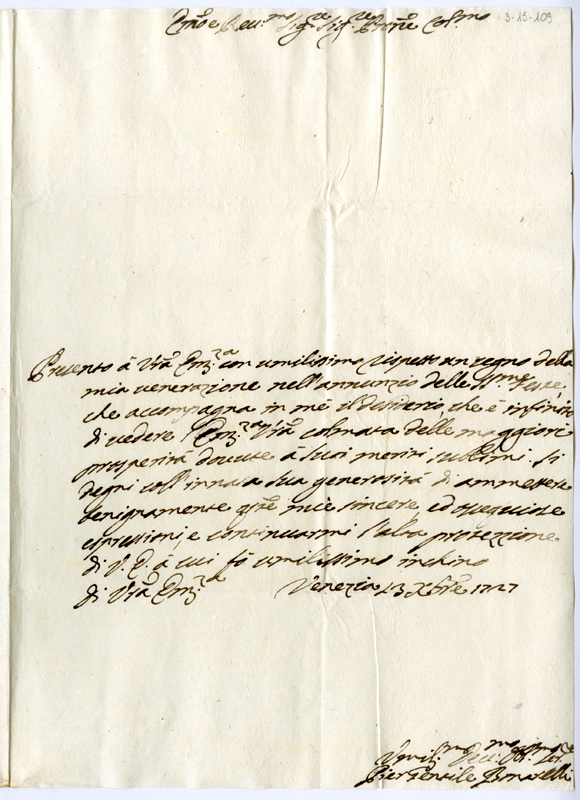 3-15-109
Emo e Reu.mo Sig.re Sig.re Prone Col.mo
Presento à Vrã Emz.za con umilissimo rispetto un segno della
mia venerazione nell'annunzio delle SS.me Feste,
che accompagna in me il desiderio, che è infinito
di vedere l'Emz.za Vrã colmata delle maggiori
prosperità dovute à suoi meriti sublimi. Si
degni coll'innata sua generosità di ammettere
benignamente qste mie sincere, ed ossequiose
espressioni, e continuarmi l'alta protezzione
di V. E. à cui fò umilissimo inchino
di Vrã Emz.za Venezia 13 Xbre 1727
Umil.mo Deu.mo Obl.mo Ser.re
Piergentile Bonarelli